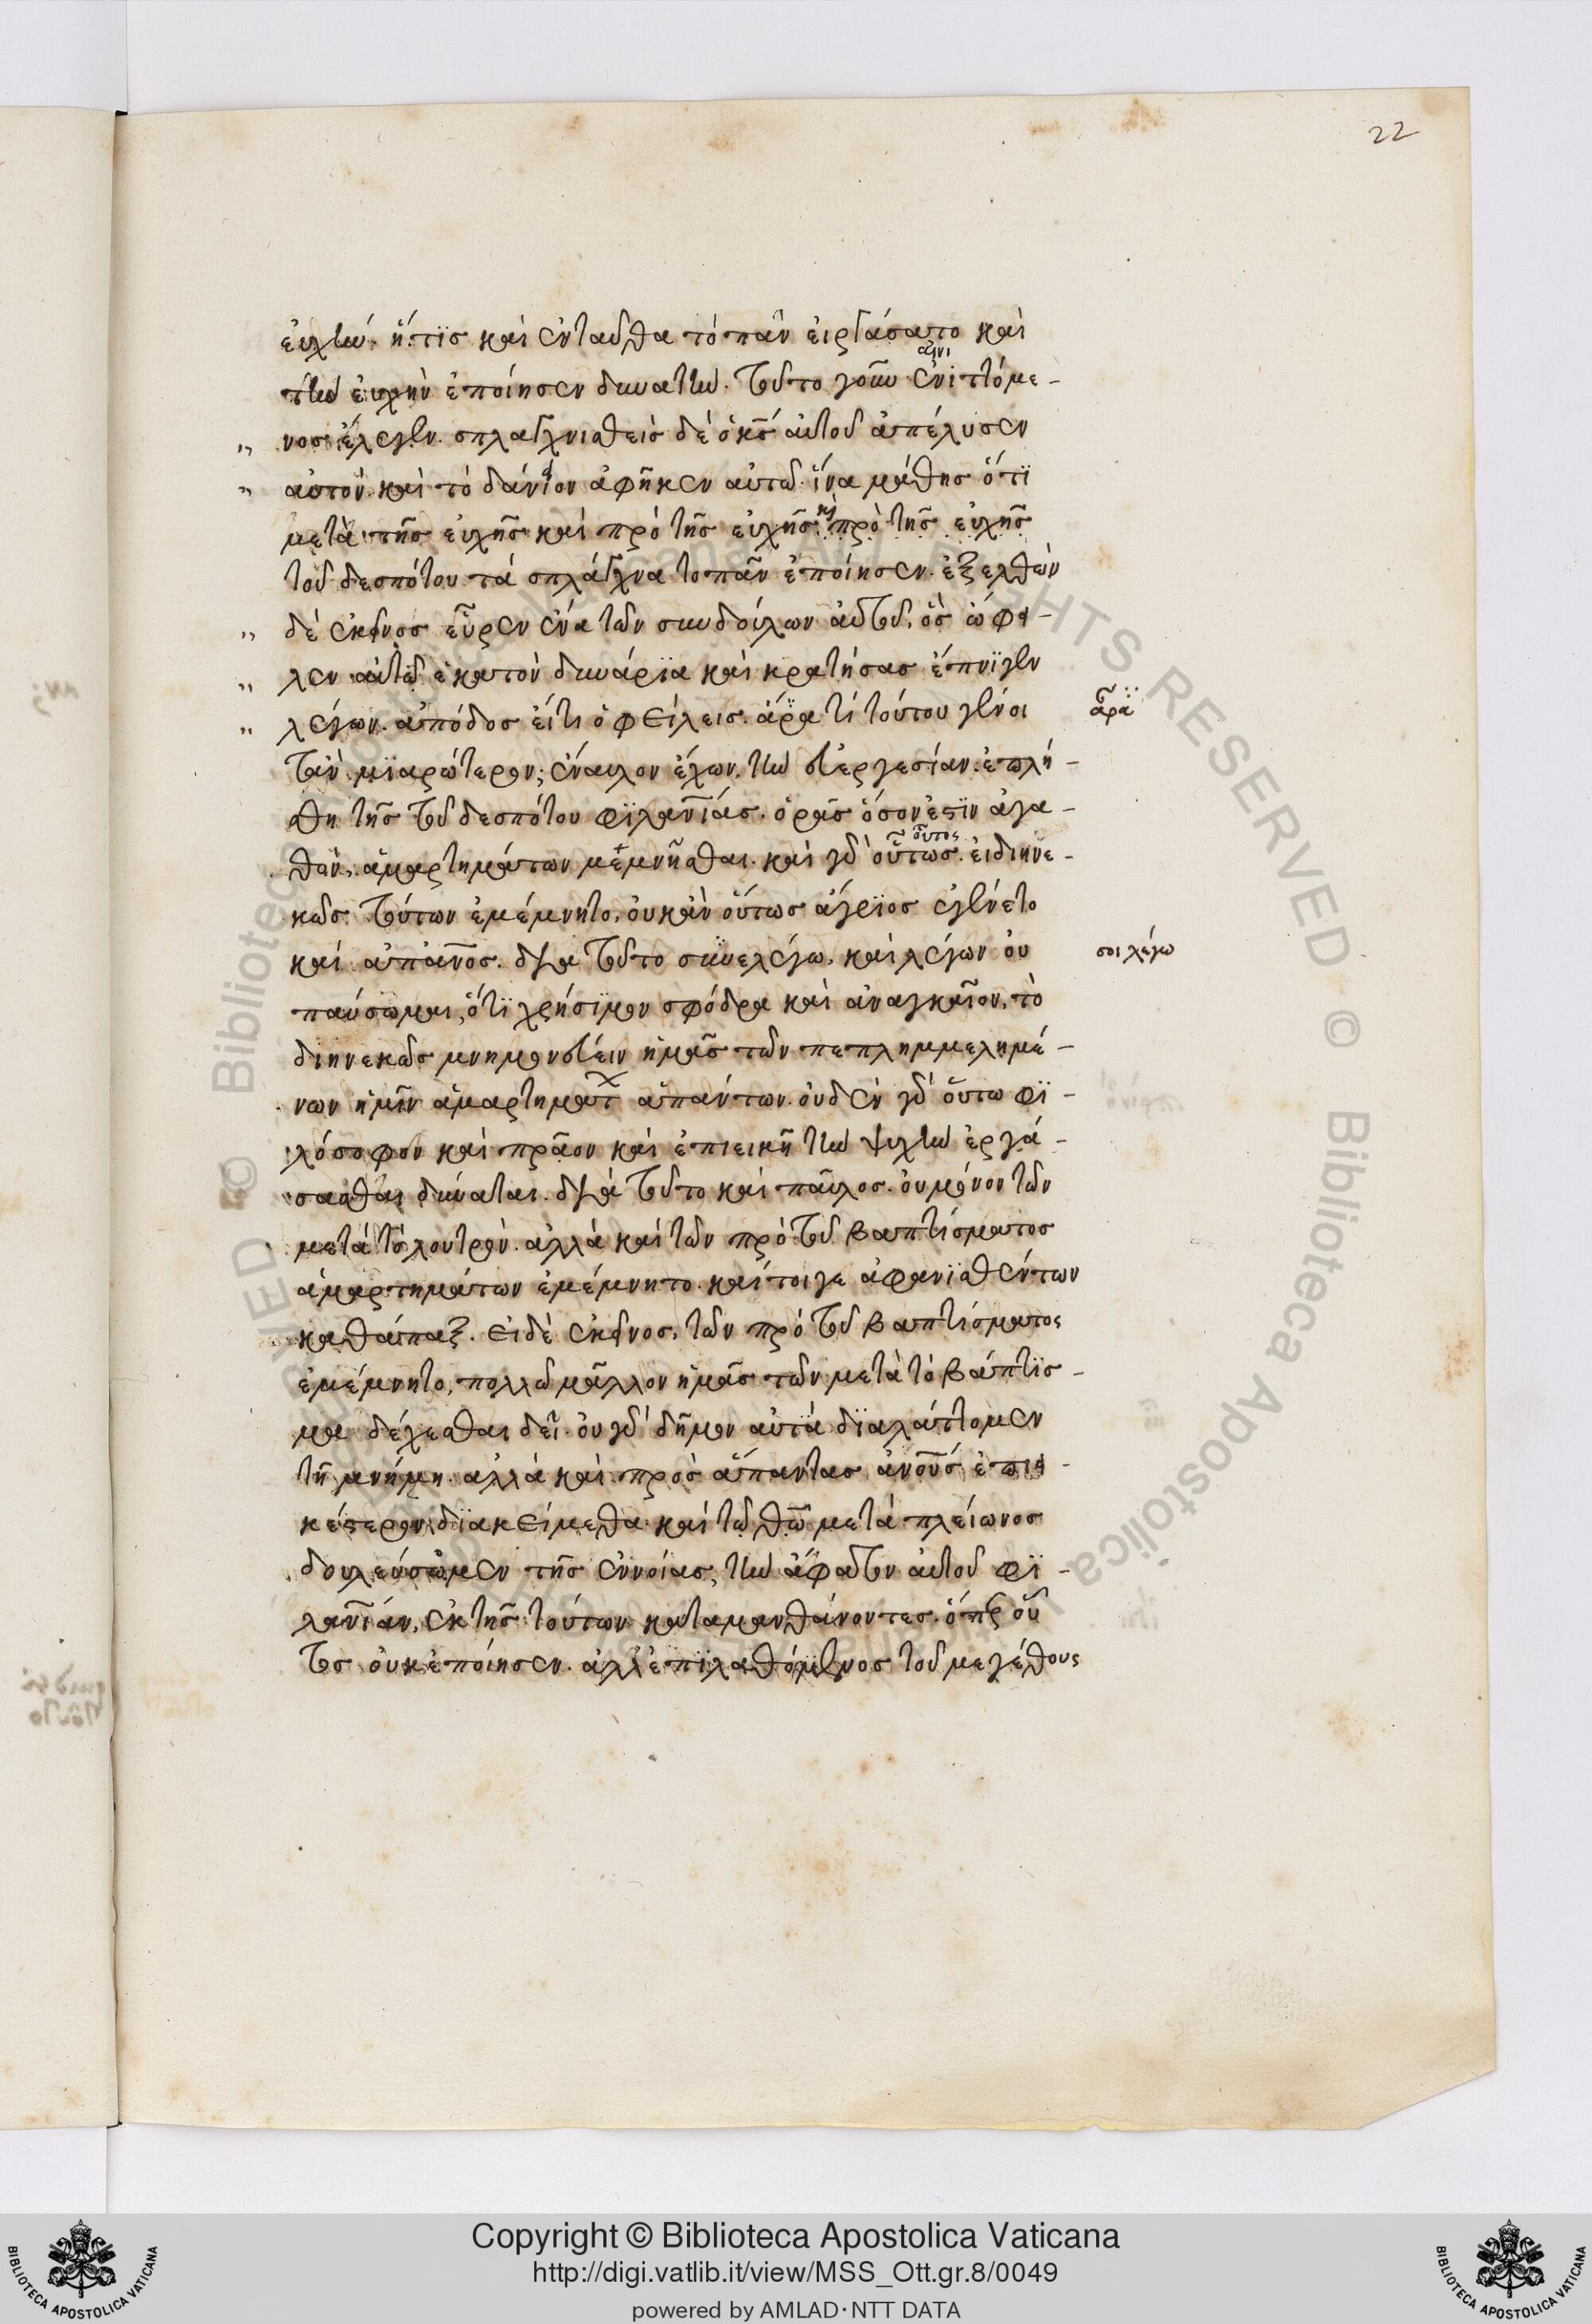 22
εὐχὴν. ἥτϊς καὶ ἐνταῦθα τὸ πᾶν εἰργάσατο καὶ
τὴν εὐχὴν ἐποίησεν δυνατὴν. τοῦτο γοῦν ἐνιττόμε -
αἰνι
„ νος ἔλεγεν. σπλαγχνισθεὶς δὲ ὁ κς̅ αὐτοῦ ἀπέλυσεν
„ αὐτὸν. καὶ τὸ δάνιον ἀφῆκεν αὐτῶ. ἵνα μάθης ὅτϊ
ει
μετὰ τῆς εὐχῆς καὶ πρὸ τῆς εὐχῆς πρὸ τῆς εὐχῆς
καὶ
τοῦ δεσπότου τὰ σπλάγχνα τοπᾶν ἐποίησεν. ἐξελθὼν
„ δὲ ἐκεῖνος εὗρεν ἕνα τῶν συνδούλων αὐτοῦ, ὃς ὤφει -
„ λεν αὐτῶ ἑκατὸν δηνάρϊα καὶ κρατήσας ἔπνϊγεν
„ λέγων. ἀπόδος εἴτι ὀφείλεις. ἄρα τί τούτου γένοι
ἆρα
τἂν μϊαρώτερον; ἔναυλον ἔχων τὴν εὐεργεσίαν. ἐπλή -
σθη τῆς τοῦ δεσπότου φϊλανι̅ας. ὁρᾶς ὅσον ἐστϊν ἀγα -
θὸν, ἁμαρτημάτων μεμνῆσθαι. καὶ γὰρ οὕτως. εἰ διηνε -
οὗτος
κῶς τούτων ἐμέμνητο. οὐκ ἂν οὕτως ἄγρϊος ἐγένετο
καὶ ἀπάνος̅. διὰ τοῦτο συνελέγω, καὶ λέγων οὐ
σοι λέγω
παύσωμαι, ὅτϊ χρήσϊμον σφόδρα καὶ ἀναγκαῖον, τὸ
διηνεκῶς μνημονεύειν ἡμᾶς τῶν πεπλημμελημέ -
νων ἡμῖν ἁμαρτημάτ ἁπάντων. οὐδὲν γὰρ οὕτω φϊ -
λόσοφον καὶ πρᾶον καὶ ἐπιεικῆ τὴν ψυχὴν ἐργά -
σασθαι δύναται. διὰ τοῦτο καὶ παῦλος. οὐ μόνον τῶν
μετὰ τὸ λουτρὸν. ἀλλὰ καὶ τῶν πρὸ τοῦ βαπτίσματος
ἁμαρτημάτων ἐμέμνητο. καίτοιγε ἀφανϊσθέντων
καθάπαξ. εἰ δὲ ἐκεῖνος, τῶν πρὸ τοῦ βαπτίσματος
ἐμέμνητο, πολλῶ μᾶλλον ἡμᾶς τῶν μετὰ τὸ βάπτϊσ -
μα δέχεσθαι δεῖ. οὐ γὰρ δῆμον αὐτὰ δϊαλάττομεν
τῆ μνήμη. ἀλλὰ καὶ πρὸς ἅπαντας ἀνου̅ς ἐπιει -
κέστερον δϊακείμεθα. καὶ τῶ θω̅ μετὰ πλείωνος
δουλεύσωμεν τῆς εὐνοίας, τὴν ἄφατον αὐτοῦ φϊ -
λανι̅αν, ἐκ τῆς τούτων καταμανθάνοντες. ὅπερ οὗ
τος οὐκ ἐποίησεν. ἀλλ' ἐπϊλαθόμενος τοῦ μεγέθους
Copyright © Biblioteca Apostolica Vaticana
http://digi.vatlib.it/view/MSS_Ott.gr.8/0049
powered by AMLAD·NTT DATA